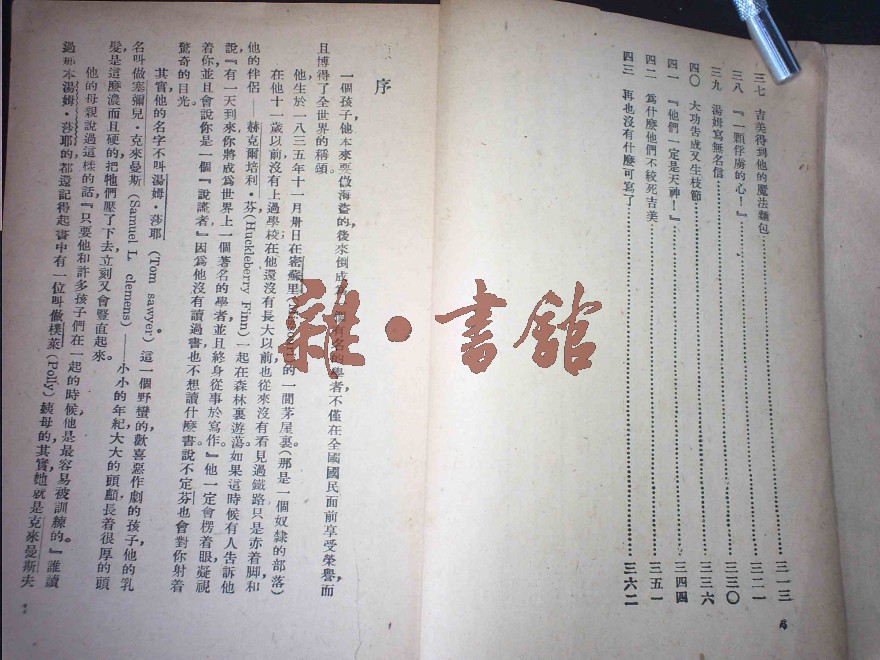 三七 吉美得到他的魔法麵包……三一三
三八 『一顆俘虜的心！』……三二一
三九 湯姆寫無名信……三三〇
四〇 大功告成又生枝節……三三六
四一 『他們一定是天神！』……三四四
四二 爲什麼他們不絞死吉美……三五一
四三 再也沒有什麼可寫了……三六二
序
一個孩子，他本來要做海盜的，後來倒成爲一個有名的學者，不僅在全國國民面前享受榮譽，而
且博得了全世界的稱頌。
他生於一八三五年十一月卅日在密蘇里(Missouri)的一間茅屋裏（那是一個奴隸的部落）
在他十一歲以前沒有上過學校，在他還沒有長大以前也從來沒有看見過鐵路，只是赤着脚和
他的伴侶——赫克爾培利·芬(Huckleberry Finn)一起在森林裏遊蕩。如果這時候有人告訴他
說『有一天到來你將成爲世界上一個著名的學者，並且終身從事於寫作。』他一定會楞着眼凝視
着你，並且會說你是一個『說謊者』因爲他沒有讀過書也不想讀什麼書，說不定芬也會對你射着
驚奇的目光。
其實他的名字不叫湯姆·莎耶 (Tom sawyer) 這一個野蠻的歡喜惡作劇的孩子，他的乳
名叫做塞彌兒·克來曼斯 (Samuel L. clemens) ——小小的年紀，大大的頭顱，長着很厚的頭
髮，是這麼濃而且硬的，把牠們壓了下去，立刻又會豎直起來。
他的母親說過這樣的話『只要他和許多孩子們在一起的時候，他是最容易被訓練的。』誰讀
過那本湯姆·莎耶的，都還記得起書中有一位叫做樸萊(Polly)姨母的，其實她就是克來曼斯夫
雜·書館